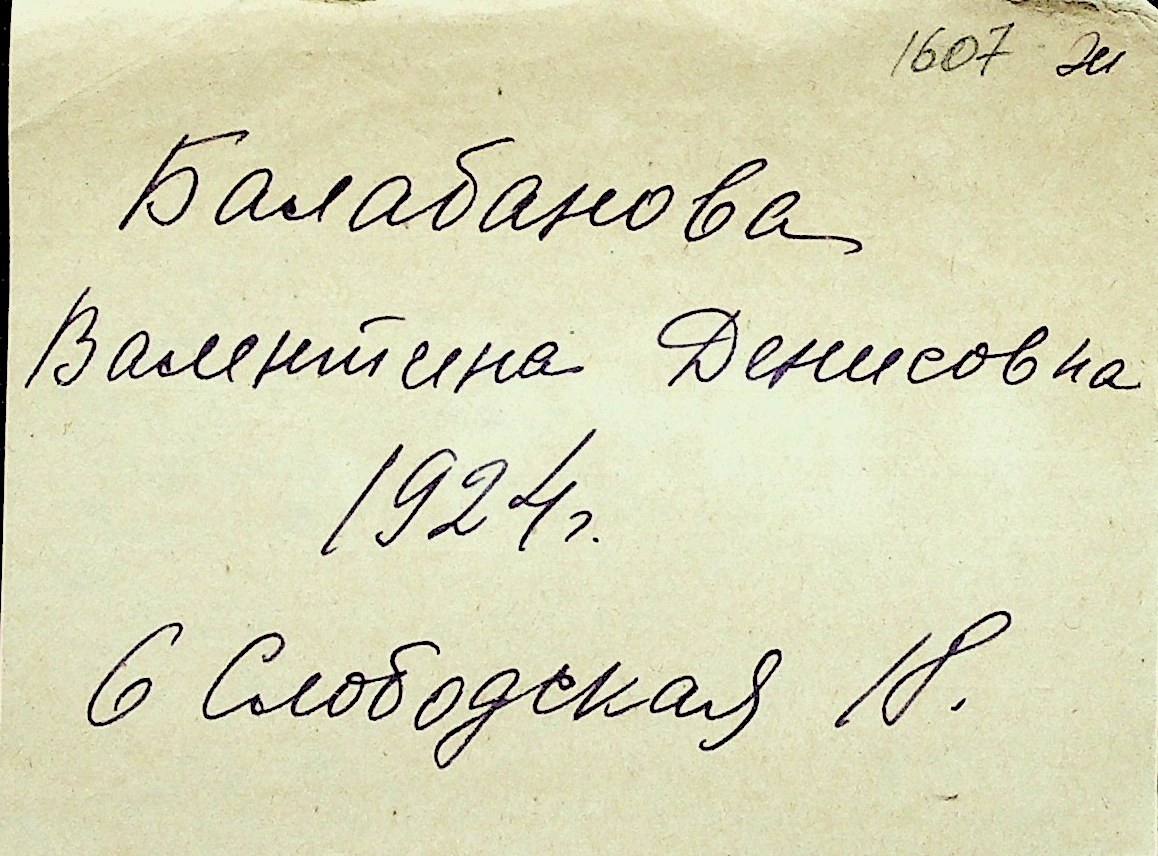 1607 эи
Балабанова
Валентина Денисовна
1924г.
6 Слободская 18.